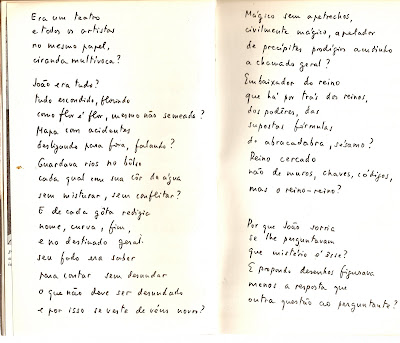 Era um teatro
e todos os artistas
no mesmo papel,
ciranda multívoca?
João era tudo?
tudo escondido, florindo
como flor é flor, mesmo não semeada?
Mapa com acidentes
deslizando para fora, falando?
Guardava rios no bolso
cada qual em sua côr de água
sem misturar, sem conflitar?
E de cada gôta redigia
nome, curva, fim,
e no destinado geral
seu fado era saber
para contar sem desnudar
o que não deve ser desnudado
e por isso se veste de véus novos?
Mágico sem apetrechos,
civilmente mágico, apelador
de precípites prodígios acudindo
a chamado geral?
Embaixador do reino
que há por trás dos reinos,
dos podêres, das
supostas fórmulas
do abracadabra, sésamo?
Reino cercado
não de muros, chaves, códigos,
mas o reino-reino?
Por que João sorria
se lhe perguntavam
que mistério é êsse?
E propondo desenhos figurava
menos a resposta que
outra questão ao perguntante?